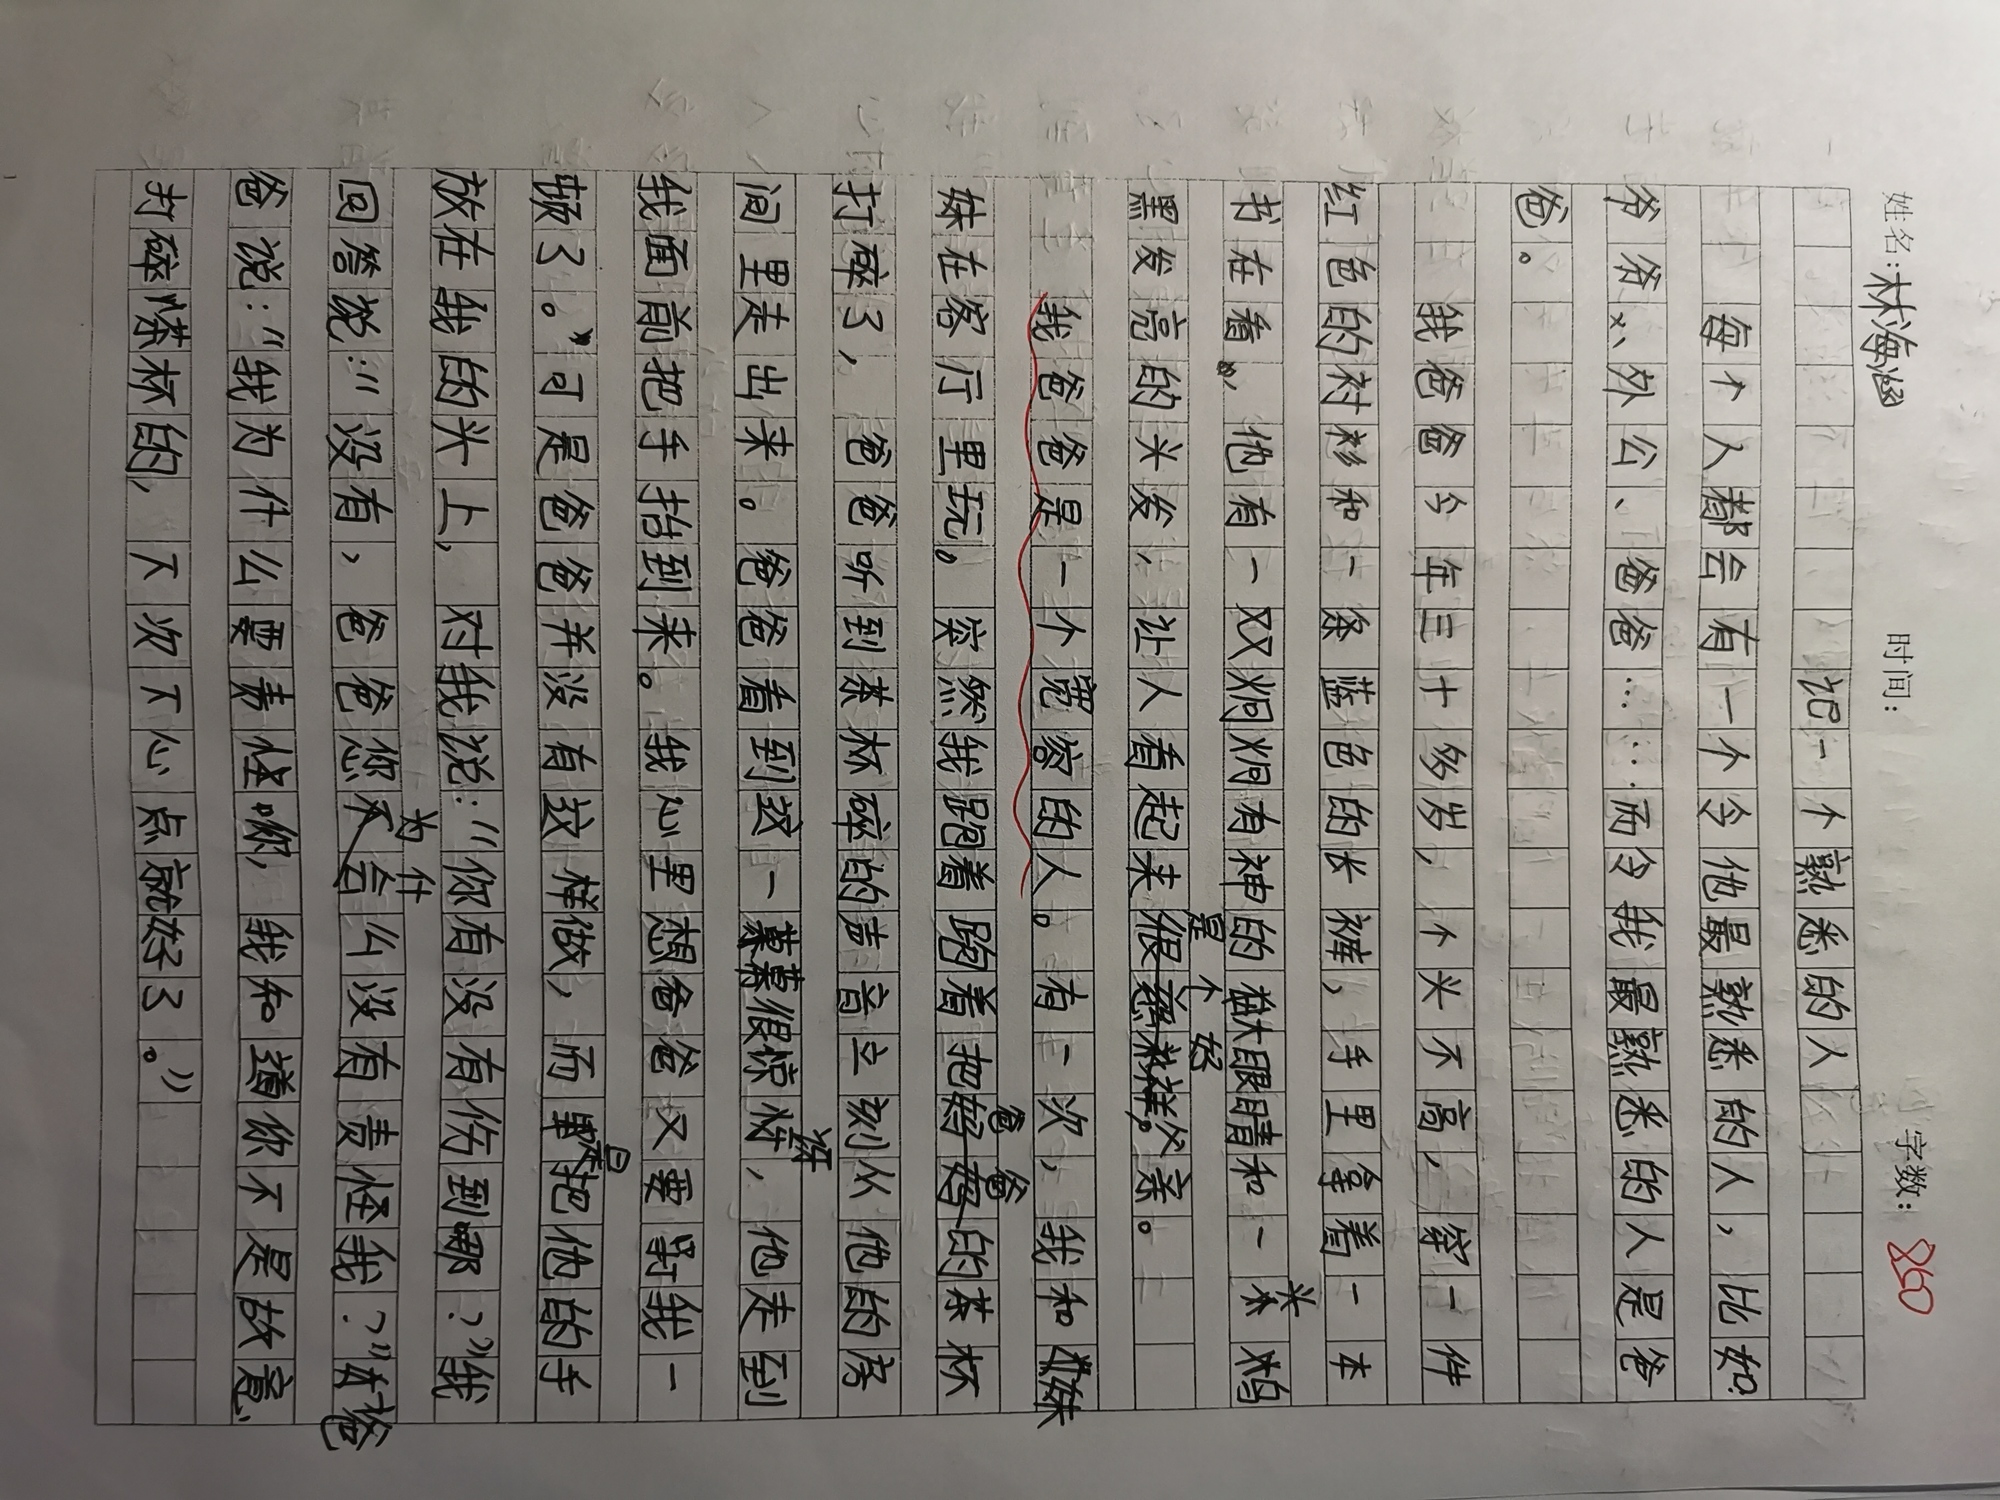 姓名：林海涵 时间： 字数：860
记一个熟悉的人
每个人都会有一个令他最熟悉的人，比如：
爷爷、外公、爸爸……而令我最熟悉的人是爸
爸。
我爸爸今年三十多岁，个头不高，穿一件
红色的衬衫和一条蓝色的长裤，手里拿着一本
书在看，他有一双炯炯有神的大眼睛和一头乌
黑发亮的头发，让人看起来是个好父亲。
我爸爸是一个宽容的人。有一次，我和妹
妹在客厅里玩。突然我跑着跑着把爸爸的茶杯
打碎了，爸爸听到茶杯碎的声音立刻从他的房
间里走出来。爸爸看到这一幕很惊讶，他走到
我面前把手抬到来。我心里想爸爸又要打我一
顿了。可是爸爸并没有这样做，而是把他的手
放在我的头上，对我说：“你有没有伤到哪？”我
回答说：“没有，爸爸您为什么没有责怪我？”爸
爸说：“我为什么要责怪你，我知道你不是故意
打碎茶杯的，下次下心点就好了。”